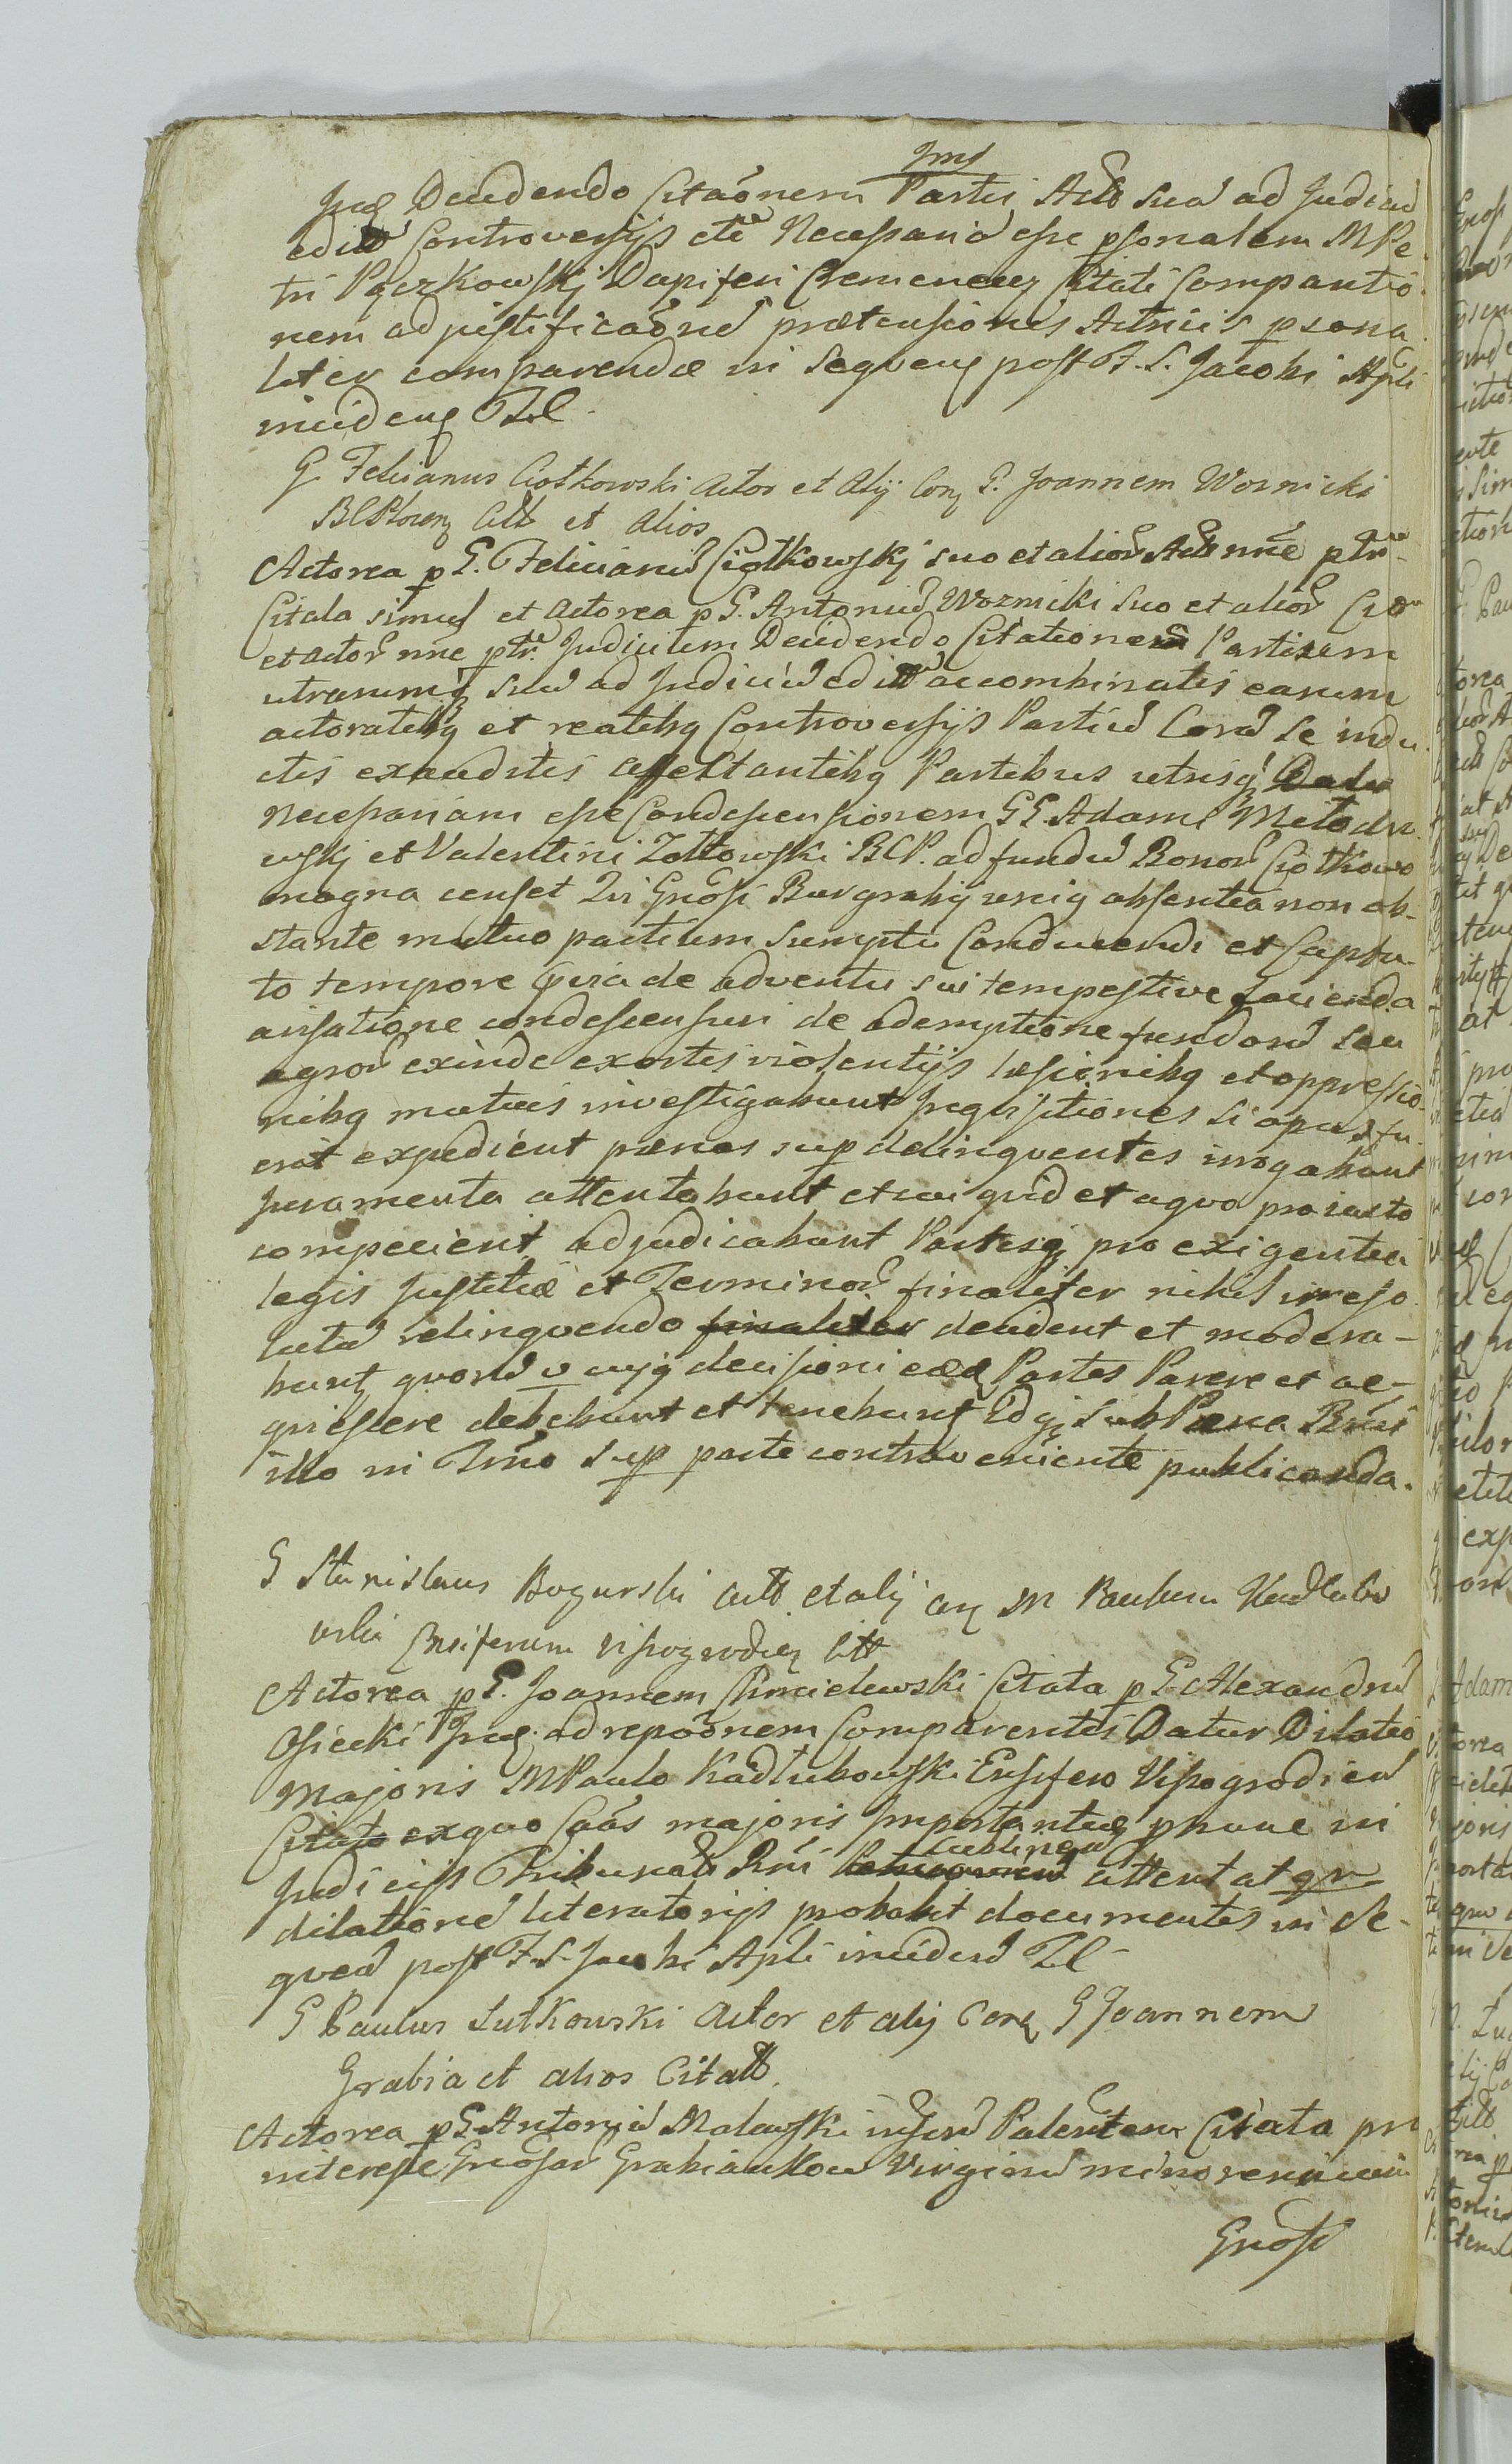 Jms
Decidendo Citaõnem Partis Actõ sua ad Judiciũ
edittã Controversijs etc Necessariã esse psonalem M Pe-
tri Pączkowskj Dapiferi Cremenecenz Citati Comparitio-
nem ad justificaõnẽ prætensionis Actricis psona-
liter comparendæ in Sequenz post F. S. Jacobi Apli
incidenz Ttl.
G. Felicianus Ciołkowski Actor et Alij Conz G. Joannem Woznicki
BCPłocenz Citt et Alios
Actorea p G. Felicianũ Ciołkowskj suo et alior Actt nñe ptr
Citata simul et Actorea p G. Antoniũ Wozniki suo et alior
et actor nñe ptr. Judicium Decidendo Citationem Partium
utrarumqz sua ad Judiciũ edittã ac combinatis earum
actoratibq et reatibq Controversijs Partiũ Corã se indu-
ctis exauditis affectantibq Partibus utrisqz
necessariam esse Condescensionem GG. Adami Meto
wskj et Valentini Zołtowski BCP. ad fundũ Bonor Ciołkowo
magna censet Qui Gnosi Burgrabij uniq absentia non ob-
stante mutuo partium sumptu Conducendi et Captu-
to tempore prævia de adventu sui tempestive facienda
avisatione condescensuri de ademptione fundorũ seu
agrorũ exinde exortis violentijs læsionibq et oppressio-
nibq mutuis investigabunt Inquisitiones si opus fu-
erit expedient pænas sup delinquentes irrogabunt
Juramenta attentabunt et cui quid et a quo pro iusto
compecient adjudicabunt Partesqz pro exigentia
legis Justitiæ et Terminor finaliter nihil irreso-
lutũ relinquendo finaliter decident et modera-
bunt quorũ v cujq decisioni eædz Partes Parere et ac-
quiescere debebunt et tenebuntz Idqz sub Pæna Bnis
illo in Tmño sup parte contraveniente publicanda.
G Stanislaus Bogurski Actt. et alij Conz M Paulum Kadłubo
wski Ensiferum Vissogrodienz Citt
Actorea p G. Joannem Chmielewski Citata p G. Alexandrũ
Osiecki Jud. ad repoõnem Comparentes Datur Dilatio
Majoris M Paulo Kadłubowski Ensifero Vissogrodien
Citato ex quo Caas majoris Importantiæ prævie in
Judicijs Tribunalit Rni Lublinen attentat qr
dilatione literatorijs probabit documentis in Se-
quen post F. S. Jacobi Apli inciden Ttl
G Paulus Lutkowski Actor et alij Conz G Joannem
Grabia et alios Citatt.
Actorea p G. Antoniũ Malewski Palestem Citata pr
interesse Gnosar Grabiankow Virginũ minorennium
Gnosi